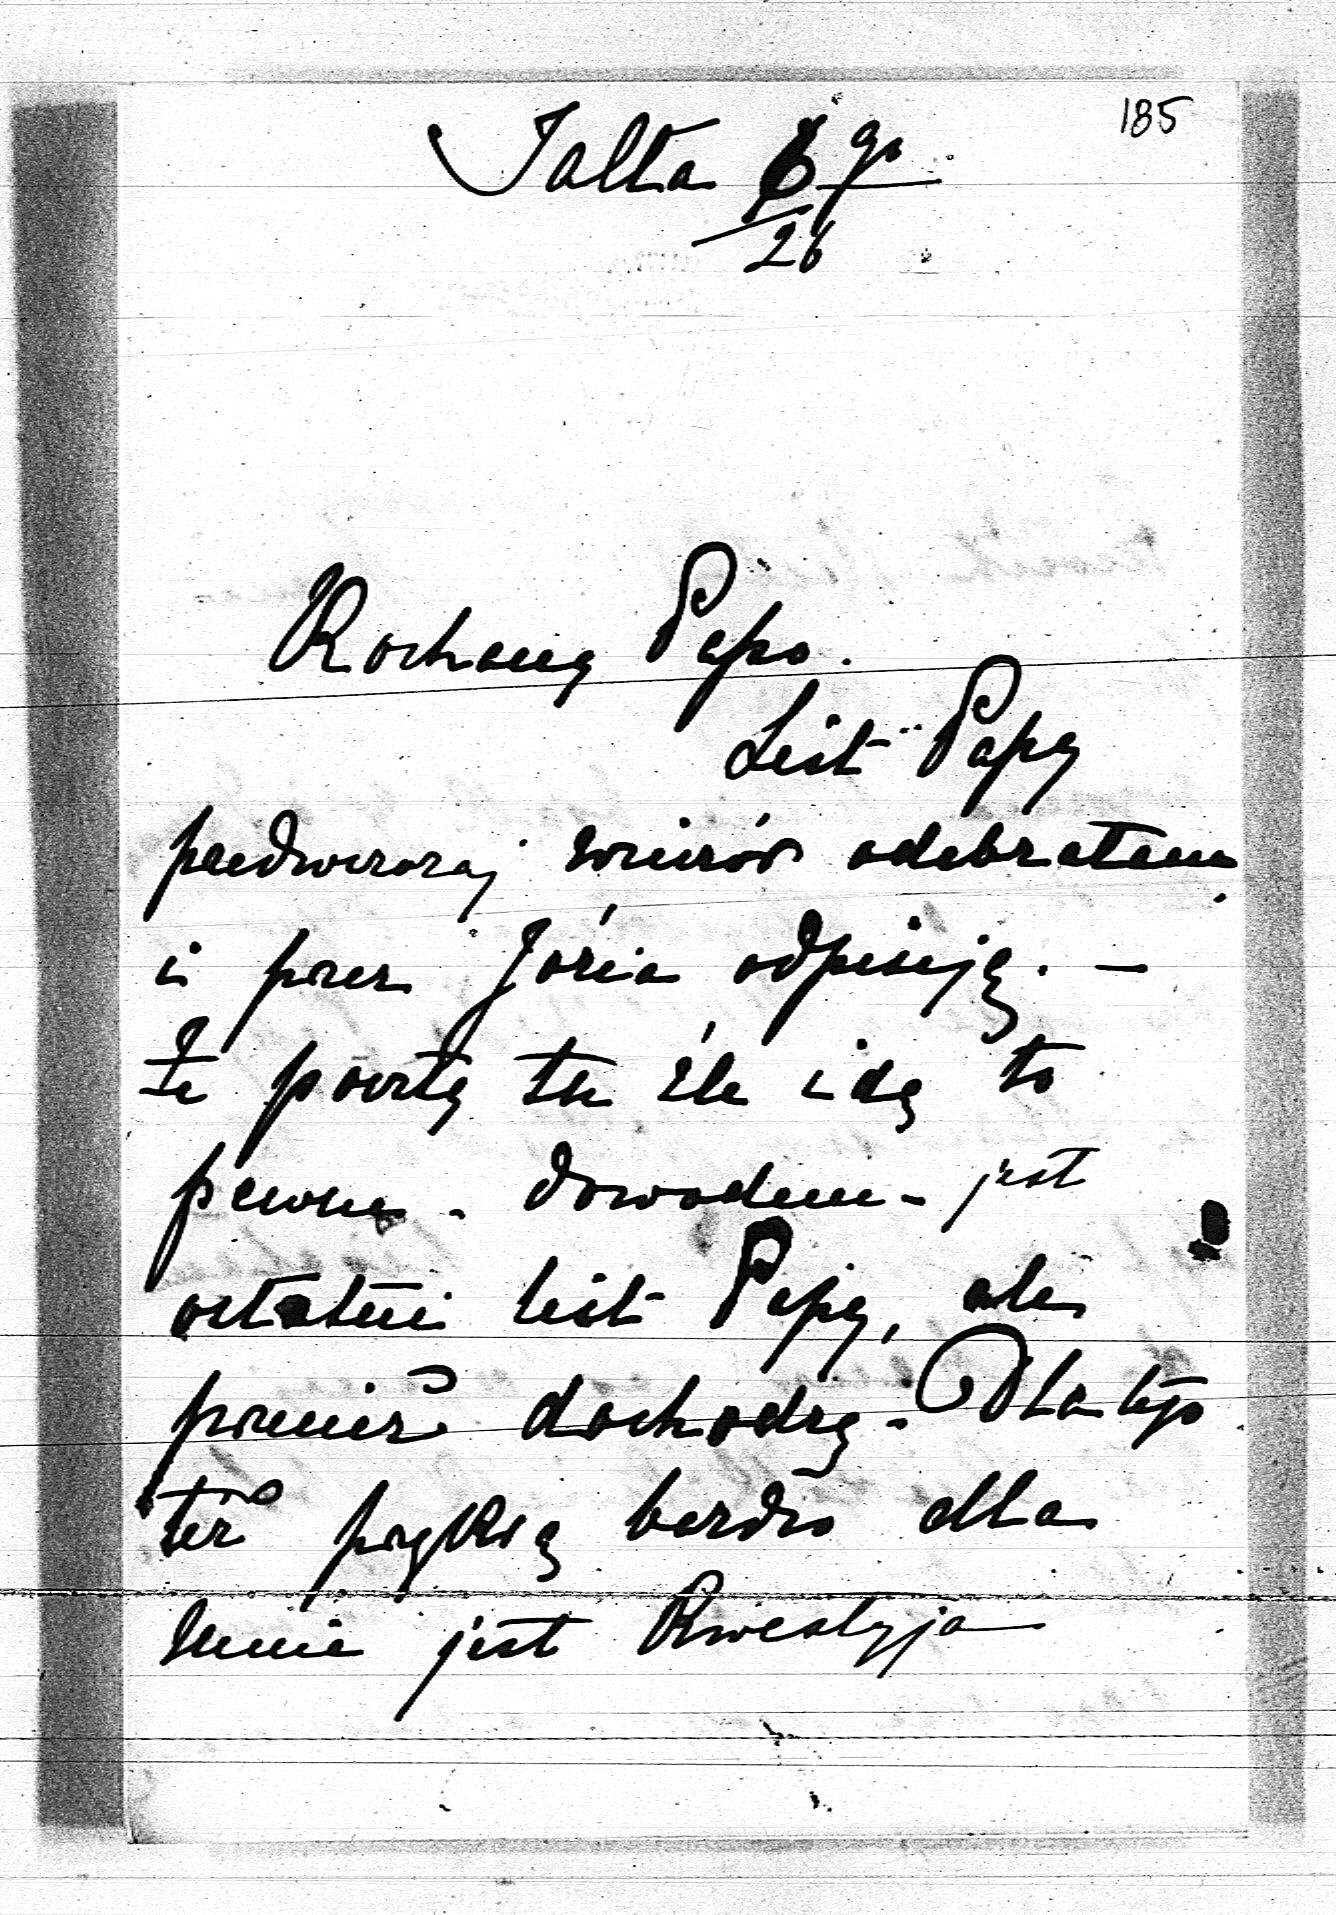 185
Jałta 6go
26
Kochany Papo.
List Papy
przedwczoraj wieczór odebrałem
i przez Józia odpisuję. —
Że poczty tu źle idą to
pewne - dowodem - jest
ostatni list Papy, ale
przecież dochodzą. Dlatego
też przykrą bardzo dla
mnie jest kwestyja